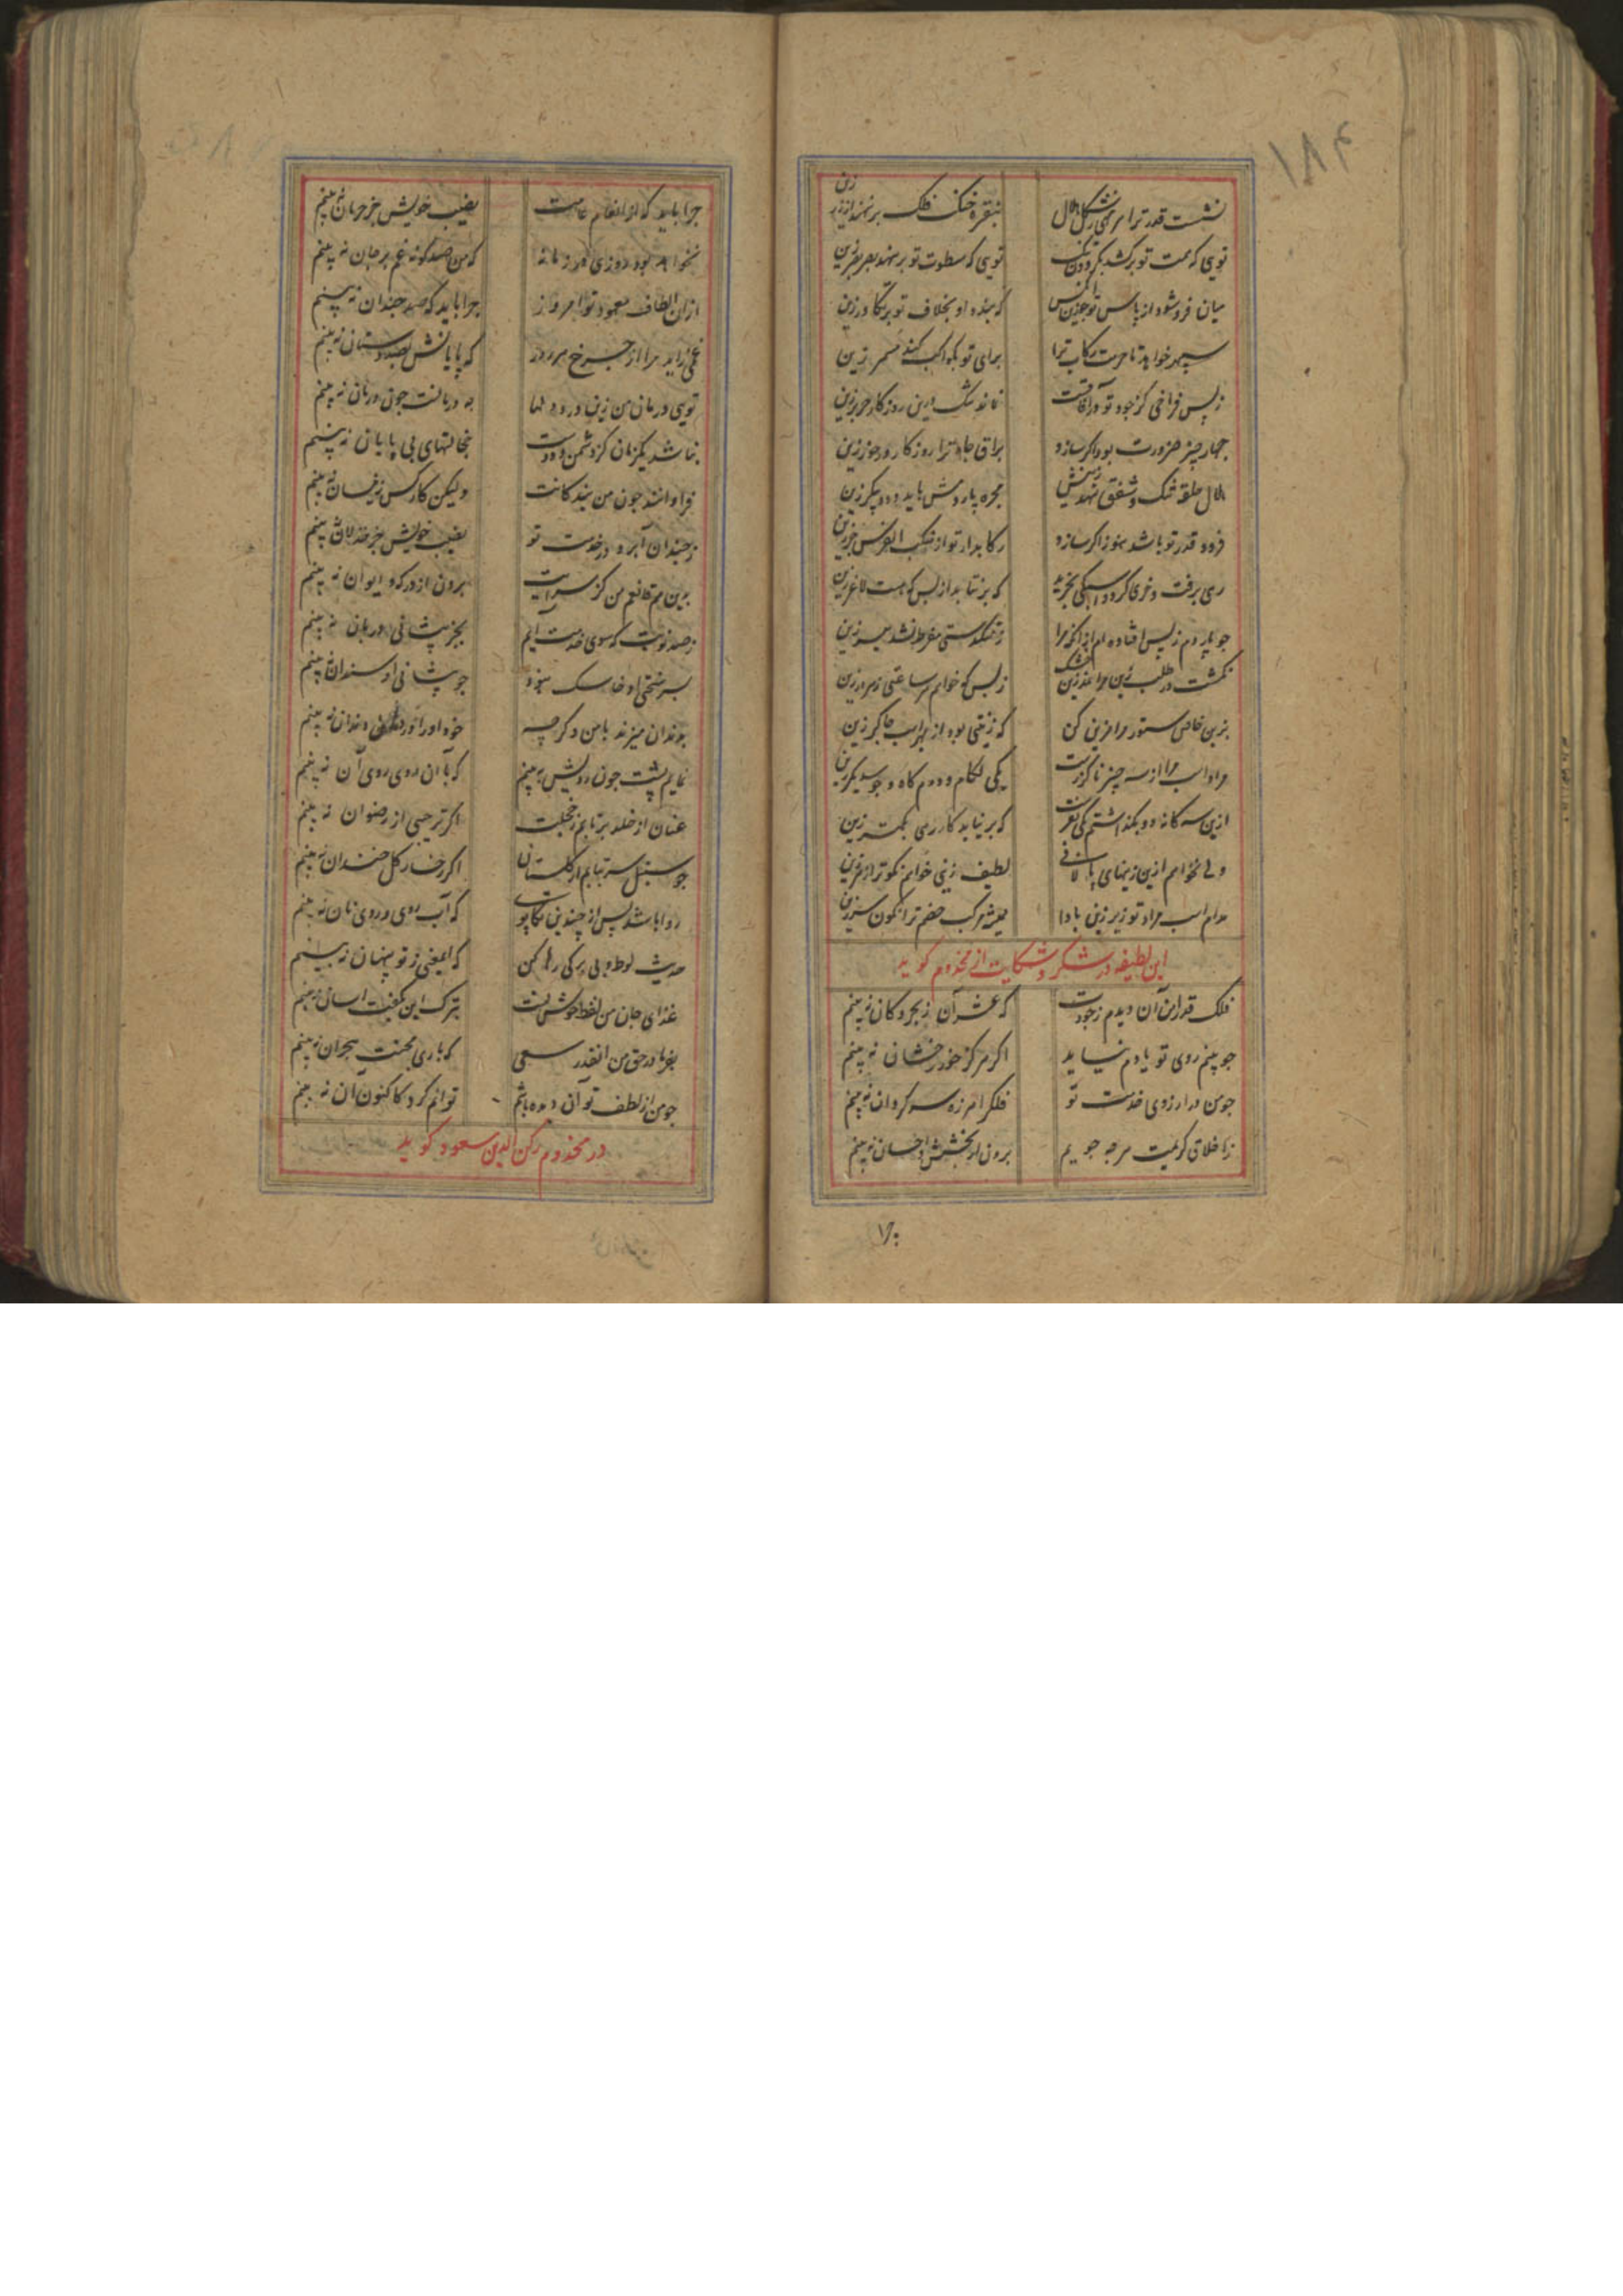 ۱۸۴
نشست قدر ترا بر هلال
بنقره خنک فلک بر نهند از زر زین
تویی که همت تو برکشد بکردون تنک
تویی که سطوت تو بر نهد زین
میان فروشود از پاس تو
که بنده او بخلاف تو بر زین
سپهر خواهد تا حرمت رکاب ترا
برای تو بکواکب کند زین
ز بس فراخی کز جود تو در آفاقست
نماند تنک درین روزکار جز زین
چهار چیز ضرورت بود اکر سازد
براق جاه ترا روزکار درخور زین
هلال حلقه تنک و شفق نمد زینش
مجره پاردمش باید و دو پیکر زین
فرود قدر تو باشد هنوز اکر سازد
رکابدار تو از منکب الفرس بر زین
رهی برفت و خری کرد و اسبکی بخرید
که بر نتابد از بس که هست لاغر زین
جو پاردم ز پس افتاده ام از انکه مرا
ز تنکدستی نشد میسر زین
بکشت در طلب زین مرا
ز بس که خواهم هر ساعتی ز هر در زین
بزین خاص ستور مرا مزین کن
که زینتی بود از بهر اسب جاکر زین
مراد اسب مرا از سه چیز ناکزرست
یکی لکام و دوم کاه و جو سدیکر زین
ازین سه کانه دو بکذاشتم یکی بفرست
که بر نیاید کار رهی بکمتر زین
ولی نخواهم ازین زینهای پالانی
لطیف زینی خواهم نکوتر از هر زین
مدام اسب مراد تو زیر زین بادا
همیشه مرکب خصم ترا نکون سر زین
این لطیفه در شکر و شکایت از مخدوم کوید
فلک قدرا من آن دیدم ز جودت
که عشر آن ز بحر و کان نه بینم
جو بینم روی تو یادم نیاید
اکر هرکز خور رخشان نه بینم
جو من در آرزوی خدمت تو
فلک را هرزه سرکردان نه بینم
ز اخلاق کریمت هرچه جویم
برون از بخشش و احسان نه بینم
چرا باید که از انعام عامت
نصیب خویش جز حرمان نه بینم
نخواهد بود روزی در زمانه
که من صد کونه غم بر جان نه بینم
از ان الطاف معهود تو امروز
چرا باید که صد جندان نه بینم
غمی زاید مرا از چرخ هر روز
که پایانش بصد دستان نه بینم
تویی درمان من زین دردها
به دربانت جون دربان نه بینم
نباشد یکزمان کز دشمن و دوست
خجالتهای بی پایان نه بینم
فراوانند جون من بندکانت
ولیکن کار کس زینسان نه بینم
ز جندان آبرو در خدمت تو
نصیب خویش جز خذلان نه بینم
بدین هم قانعم من کز سرایت
برون از درکه و ایوان نه بینم
ز صد نوبت که سوی خدمت آیم
بجز پیشانی دربان نه بینم
بسر سختی او خایسک نبود
جو پیشانی او سندان نه بینم
بدندان میزند بامن و کرچه
خود او را دندان نه بینم
نمایم پشت جون رویش به بینم
که با آن روی روی آن نه بینم
عنان از خلد برتابم ز خجلت
اکر ترحیبی از رضوان نه بینم
جو سنبل سر بتابم از کلستان
اکر رخسار کل خندان نه بینم
روا باشد پس از جندین تکاپوی
که آب روی و روی نان نه بینم
حدیث لوط و بی برکی رها کن
که این معنی ز تو پنهان نه بینم
غذای جان من لفظ خوش تست
بترک این بکفتن آسان نه بینم
بفرما در حق من اینقدر سعی
که باری محنت هجران نه بینم
جو من از لطف تو آن دیده باشم
توانم کرد کاکنون آن نه بینم
در مخدوم رکن الدین مسعود کوید